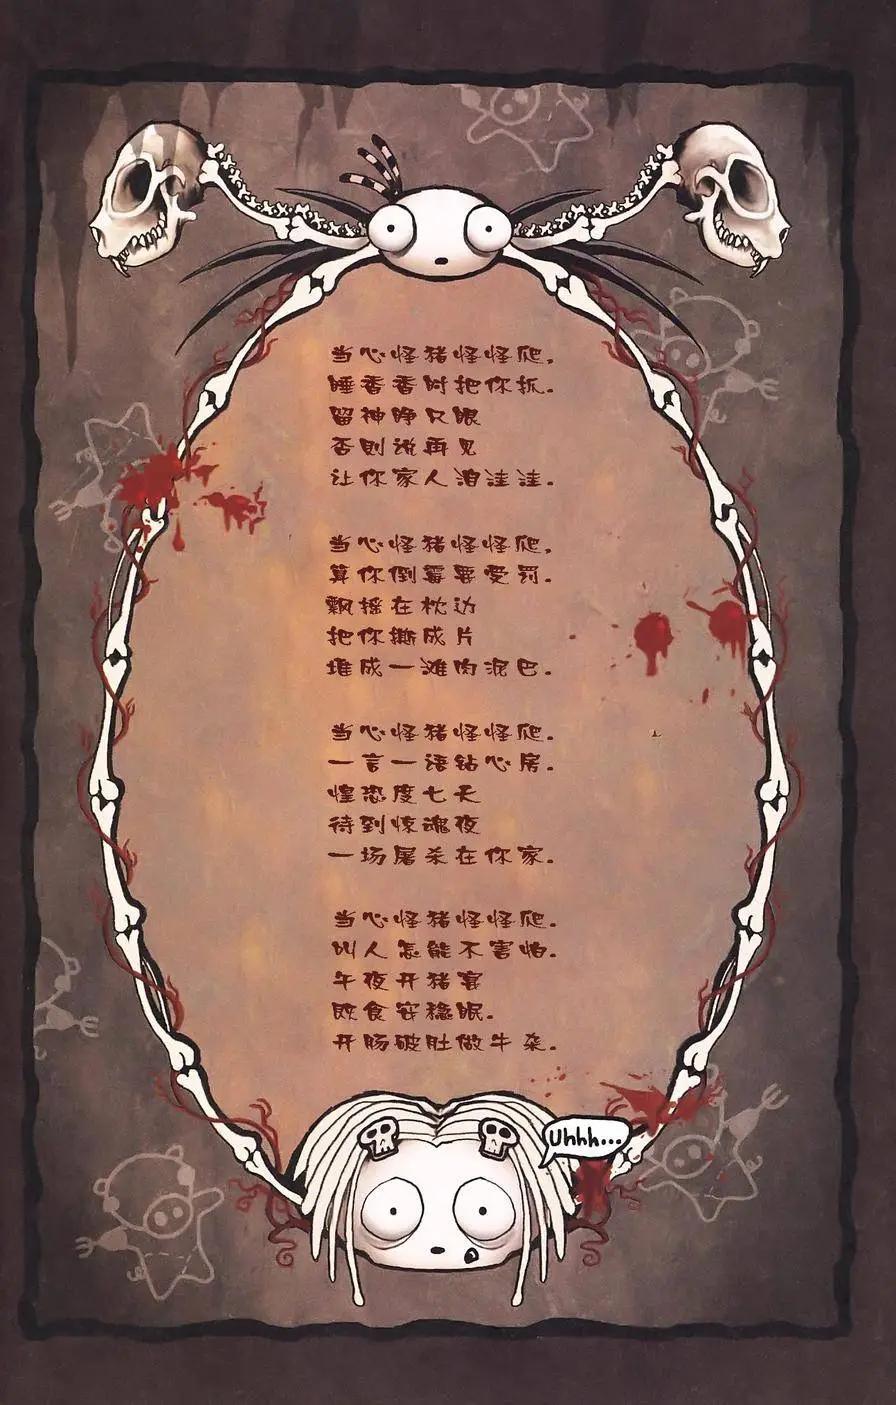 当心怪猪怪怪爬，
睡香香时把你抓。
留神睁只眼
否则说再见
让你家人泪洼洼。
当心怪猪怪怪爬，
算你倒霉要受罚。
飘摇在枕边
把你撕成片
堆成一滩肉泥巴。
当心怪猪怪怪爬。
一言一语钻心房。
惶恐度七天
待到惊魂夜
一场屠杀在你家。
当心怪猪怪怪爬。
叫人怎能不害怕。
午夜开猪宴
饮食安稳眠。
开肠破肚做牛杂。
Uhhh...